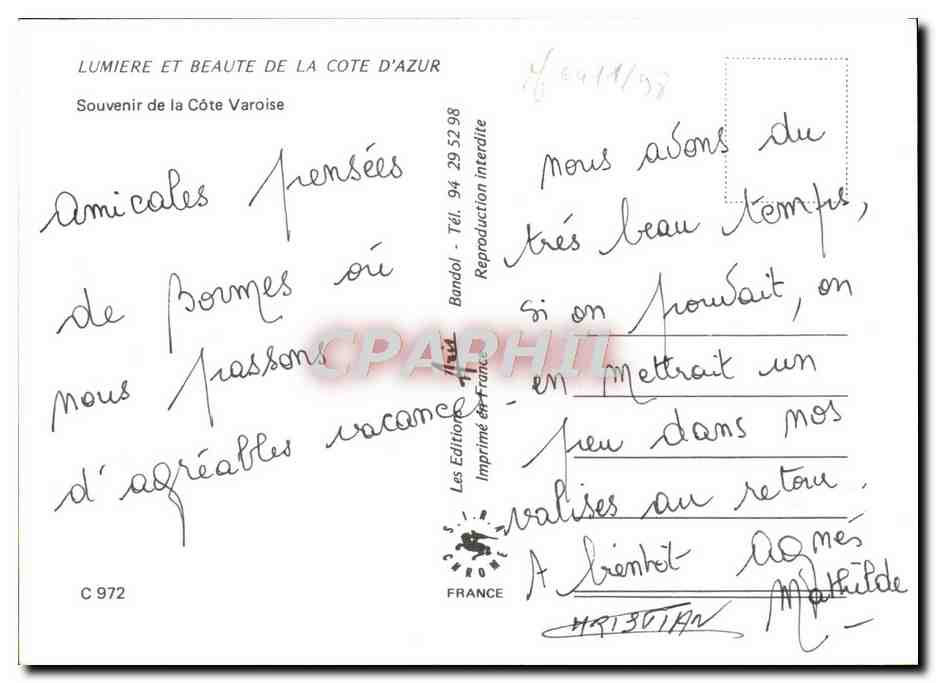 LUMIERE ET BEAUTE DE LA COTE D'AZUR
Souvenir de la Côte Varoise
amicales pensées
de Bormes où
nous passons
d'agréables vacances_
C 972
Les Editions Aris Bandol - Tél. 94 29 52 98
Imprimé en France Reproduction interdite
CPAPHIL
CHROME
FRANCE
nous avons du
très beau temps,
si on pouvait, on
en mettrait un
peu dans nos
valises au retour.
A bientôt Agnés
Mathilde
CHRISTIAN